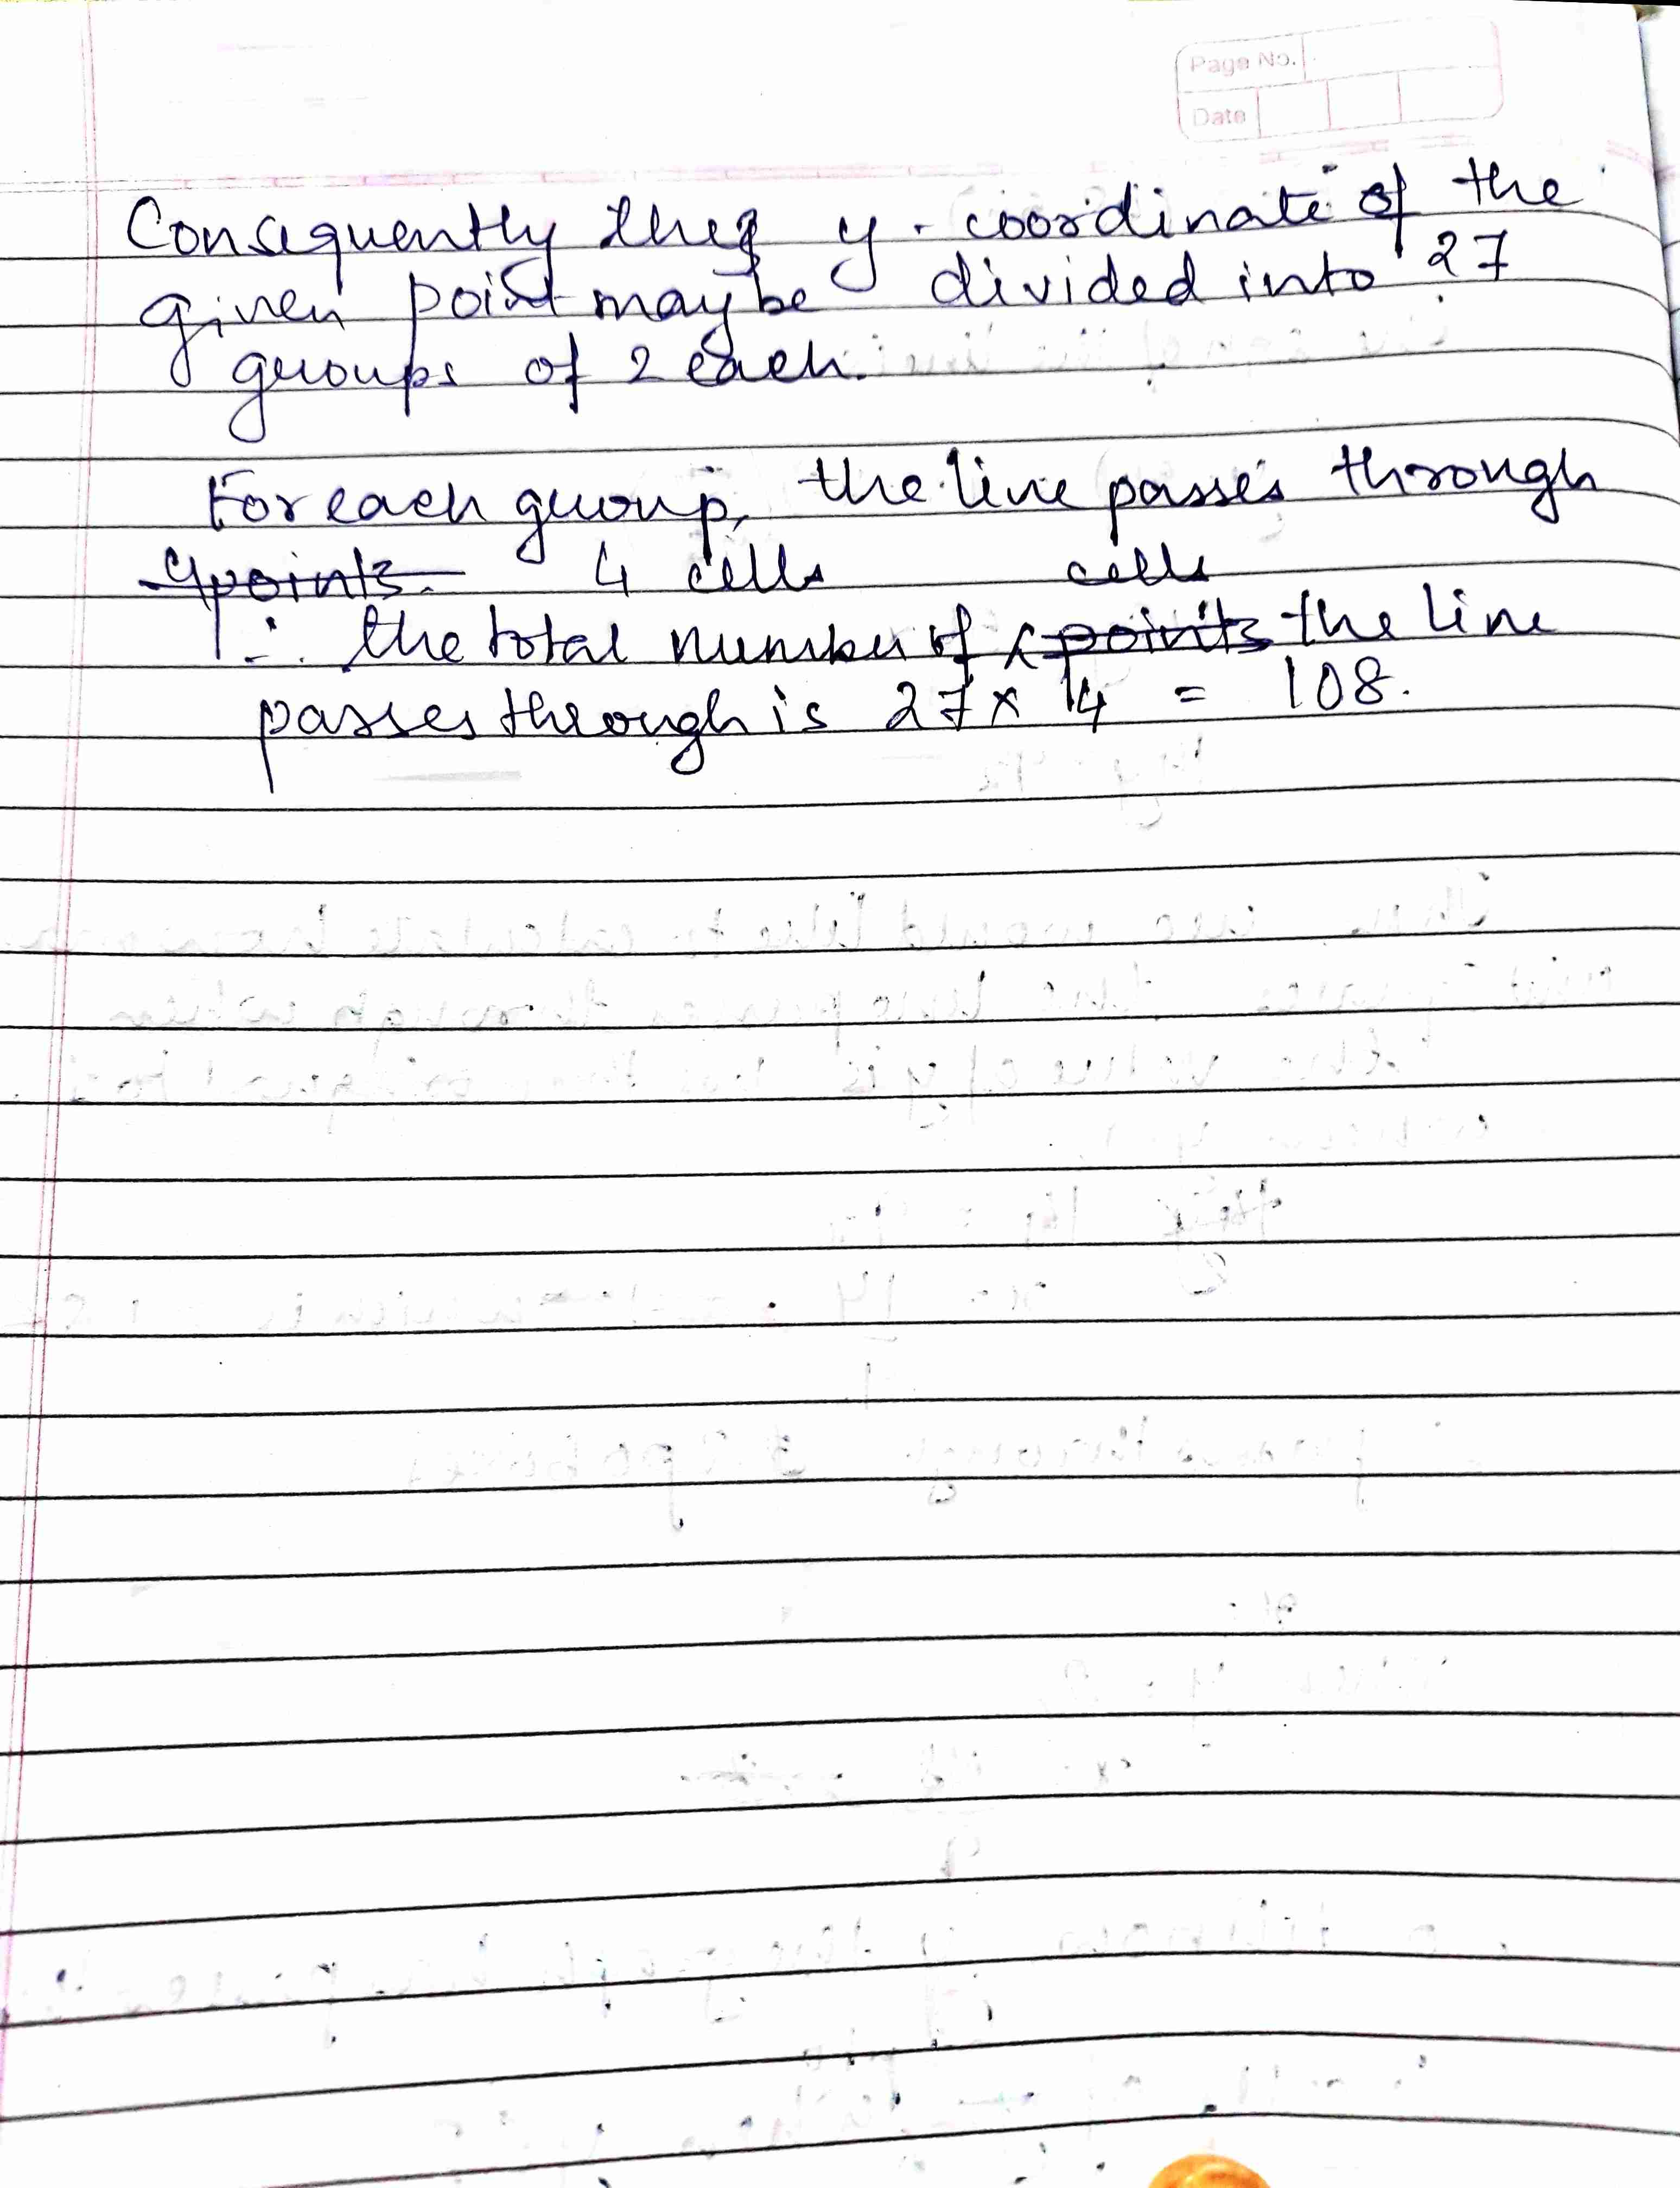 Page No.
Date
Consequently the y-coordinate of the
given point may be divided into 27
groups of 2 each.
For each group, the line passes through
4 points. 4 cells cells
∴ the total number of points the line
passes through is 27 x 4 = 108.